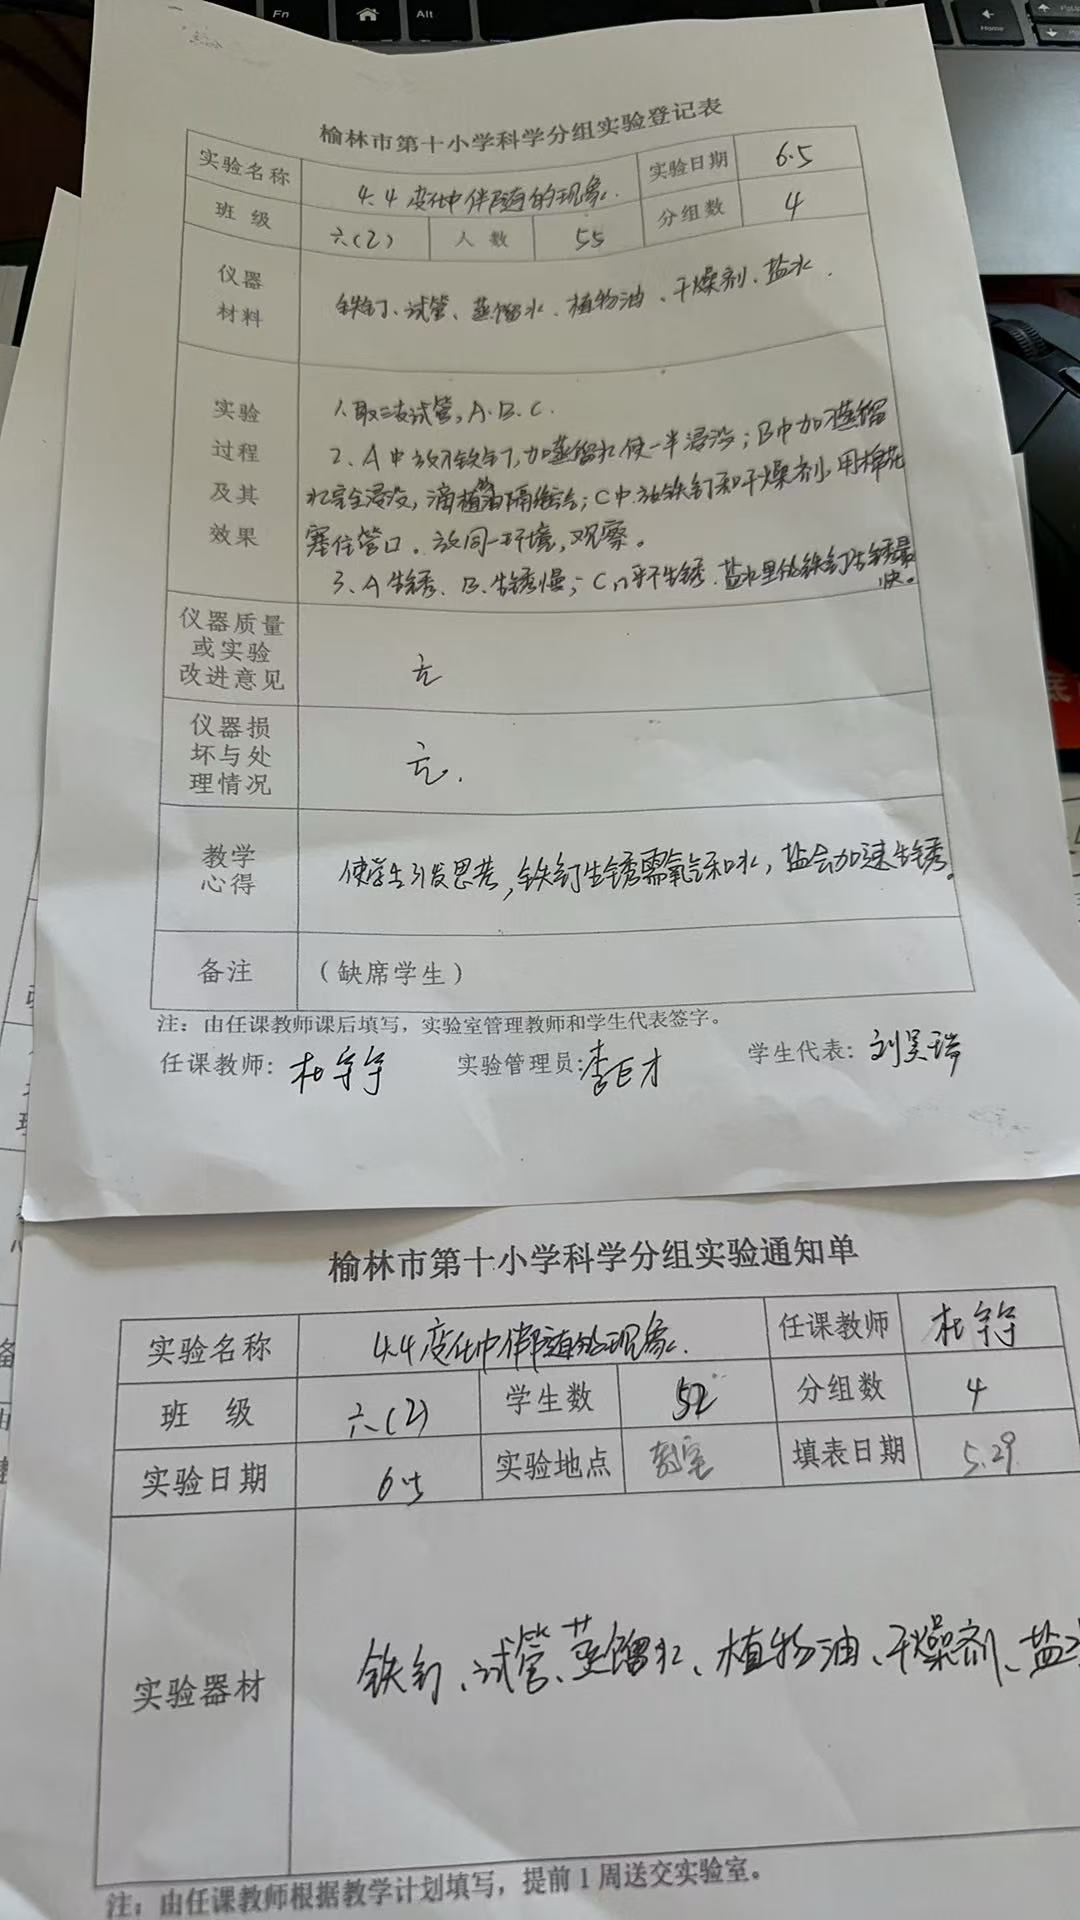 Fn
Alt
Home
PgUp
榆林市第十小学科学分组实验登记表
实验名称 4.4变化中伴随的现象. 实验日期 6.5
班级 六(2) 人数 55 分组数 4
仪器
材料
铁钉、试管、蒸馏水、植物油、干燥剂、盐水.
实验
过程
及其
效果
1.取三支试管,A.B.C.
2、A中放入铁钉,加蒸馏水使一半浸没;B中加入蒸馏
水完全浸没,滴植物油隔绝空气;C中放铁钉和干燥剂,用棉花
塞住管口。放同一环境,观察。
3、A生锈、B.生锈慢;C几乎不生锈.盐水里的铁钉生锈最
快。
仪器质量
或实验
改进意见
无
仪器损
坏与处
理情况
无.
教学
心得
使学生引发思考,铁钉生锈需氧气和水,盐会加速生锈。
备注 (缺席学生)
注:由任课教师课后填写,实验室管理教师和学生代表签字。
任课教师:杜宇宇 实验管理员:李巨才 学生代表:刘昊瑞
榆林市第十小学科学分组实验通知单
实验名称 4.4变化中伴随的现象. 任课教师 杜宇宇
班级 六(2) 学生数 52 分组数 4
实验日期 6.5 实验地点 教室 填表日期 5.29
实验器材 铁钉、试管、蒸馏水、植物油、干燥剂、盐水
注:由任课教师根据教学计划填写,提前1周送交实验室。